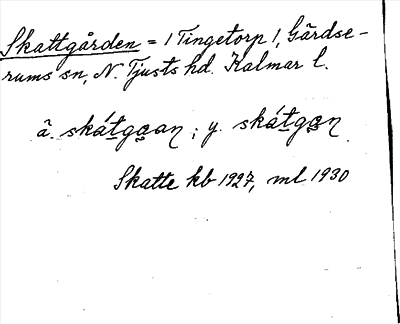 Skattgården = 1 Tingetorp 1, Gärdse-
rums sn, N. Tjusts hd. Kalmar l.
ä. skátgaan; y. skátgan
Skatte kb 1927, ml 1930